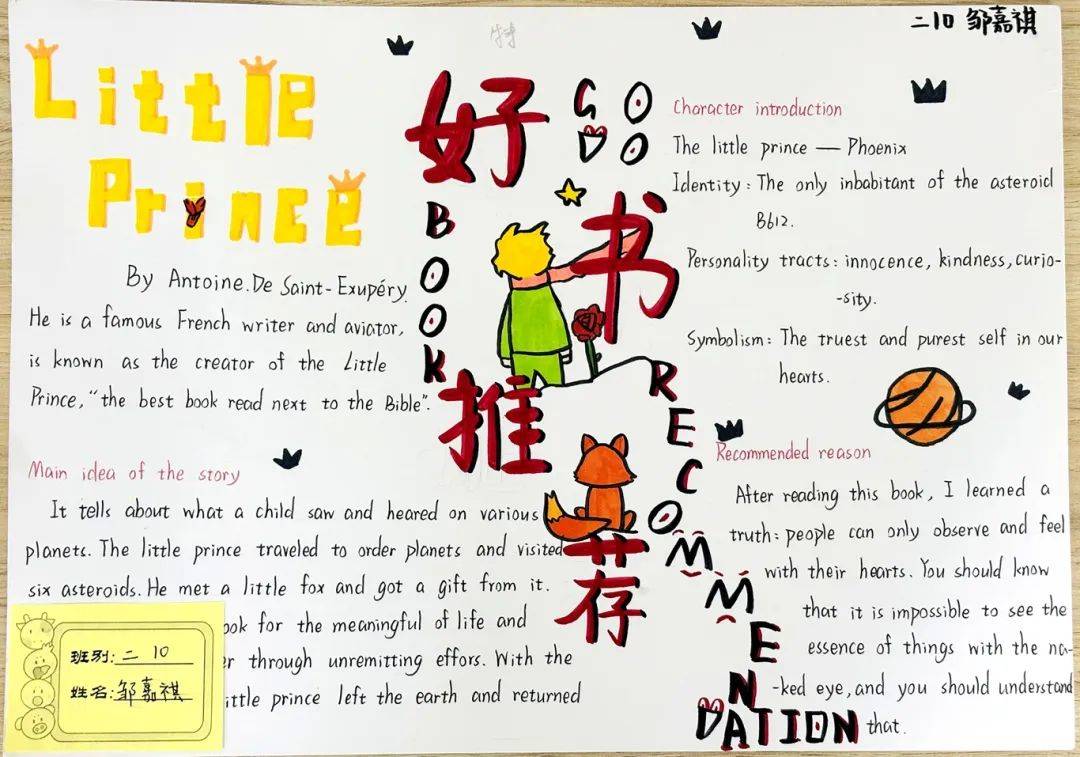 二10 邹嘉祺
特
Little
Prince
By Antoine.De Saint-Exupéry.
He is a famous French writer and aviator,
is known as the creator of the Little
Prince, “the best book read next to the Bible”.
Main idea of the story
It tells about what a child saw and heared on various
planets. The little prince traveled to order planets and visited
six asteroids. He met a little fox and got a gift from it.
ook for the meaningful of life and
r through unremitting effors. With the
ittle prince left the earth and returned
班别: 二 10
姓名: 邹嘉祺
好书推荐
GOOD
BOOK
RECOMMENDATION
Character introduction
The little prince — Phoenix
Identity: The only inbabitant of the asteroid
B612.
Personality tracts: innocence, kindness, curio-
-sity.
Symbolism: The truest and purest self in our
hearts.
Recommended reason
After reading this book, I learned a
truth: people can only observe and feel
with their hearts. You should know
that it is impossible to see the
essence of things with the na-
-ked eye, and you should understand
that.